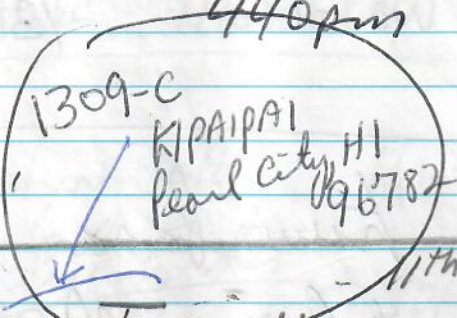 440pm
1309-C
KIPAIPAI
Pearl City, HI
96782
11th